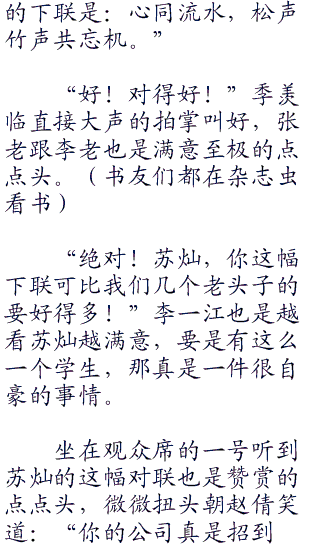 的下联是：心同流水，松声
竹声共忘机。”
“好！对得好！”季羡
临直接大声的拍掌叫好，张
老跟李老也是满意至极的点
点头。（书友们都在杂志虫
看书）
“绝对！苏灿，你这幅
下联可比我们几个老头子的
要好得多！”李一江也是越
看苏灿越满意，要是有这么
一个学生，那真是一件很自
豪的事情。
坐在观众席的一号听到
苏灿的这幅对联也是赞赏的
点点头，微微扭头朝赵倩笑
道：“你的公司真是招到